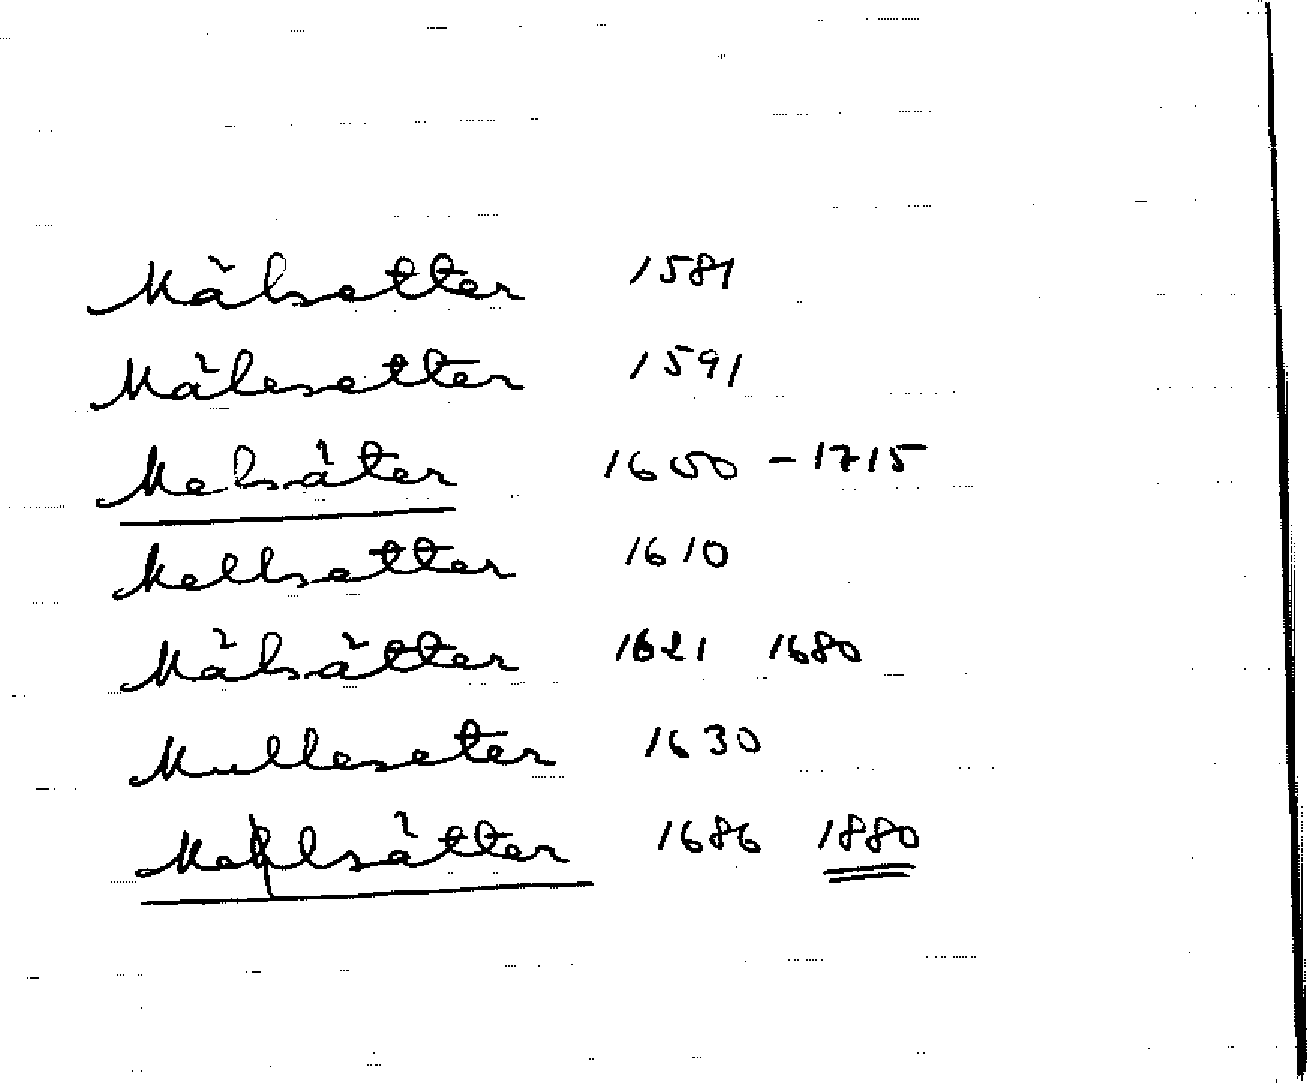 Mälsetter 1581
Mälesetter 1591
Melsäter 1650 - 1715
Mellsetter 1610
Mälsätter 1621 1680
Mulleseter 1630
Mehlsätter 1686 1880